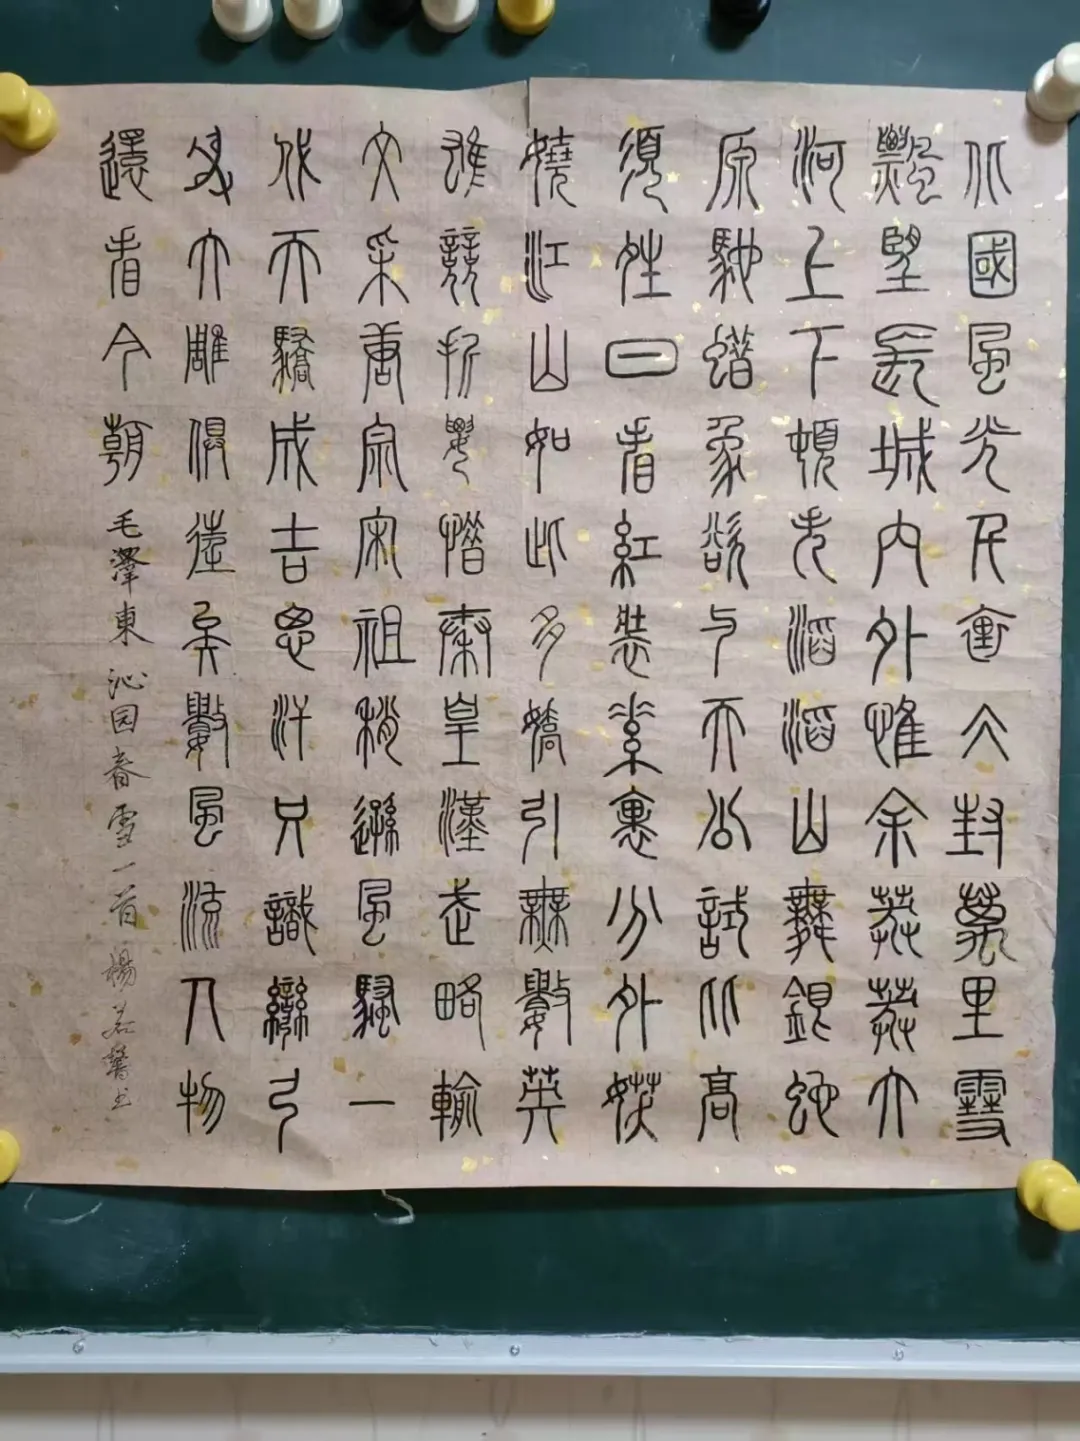 北國風光千里冰封萬里雪
飄望長城內外惟余莽莽大
河上下頓失滔滔山舞銀蛇
原馳蠟象欲与天公試比高
須晴日看紅裝素裹分外妖
嬈江山如此多嬌引無數英
雄競折腰惜秦皇漢武略輸
文采唐宗宋祖稍遜風騷一
代天驕成吉思汗只識彎弓
射大雕俱往矣數風流人物
還看今朝 毛澤東 沁园春雪一首 楊若馨书